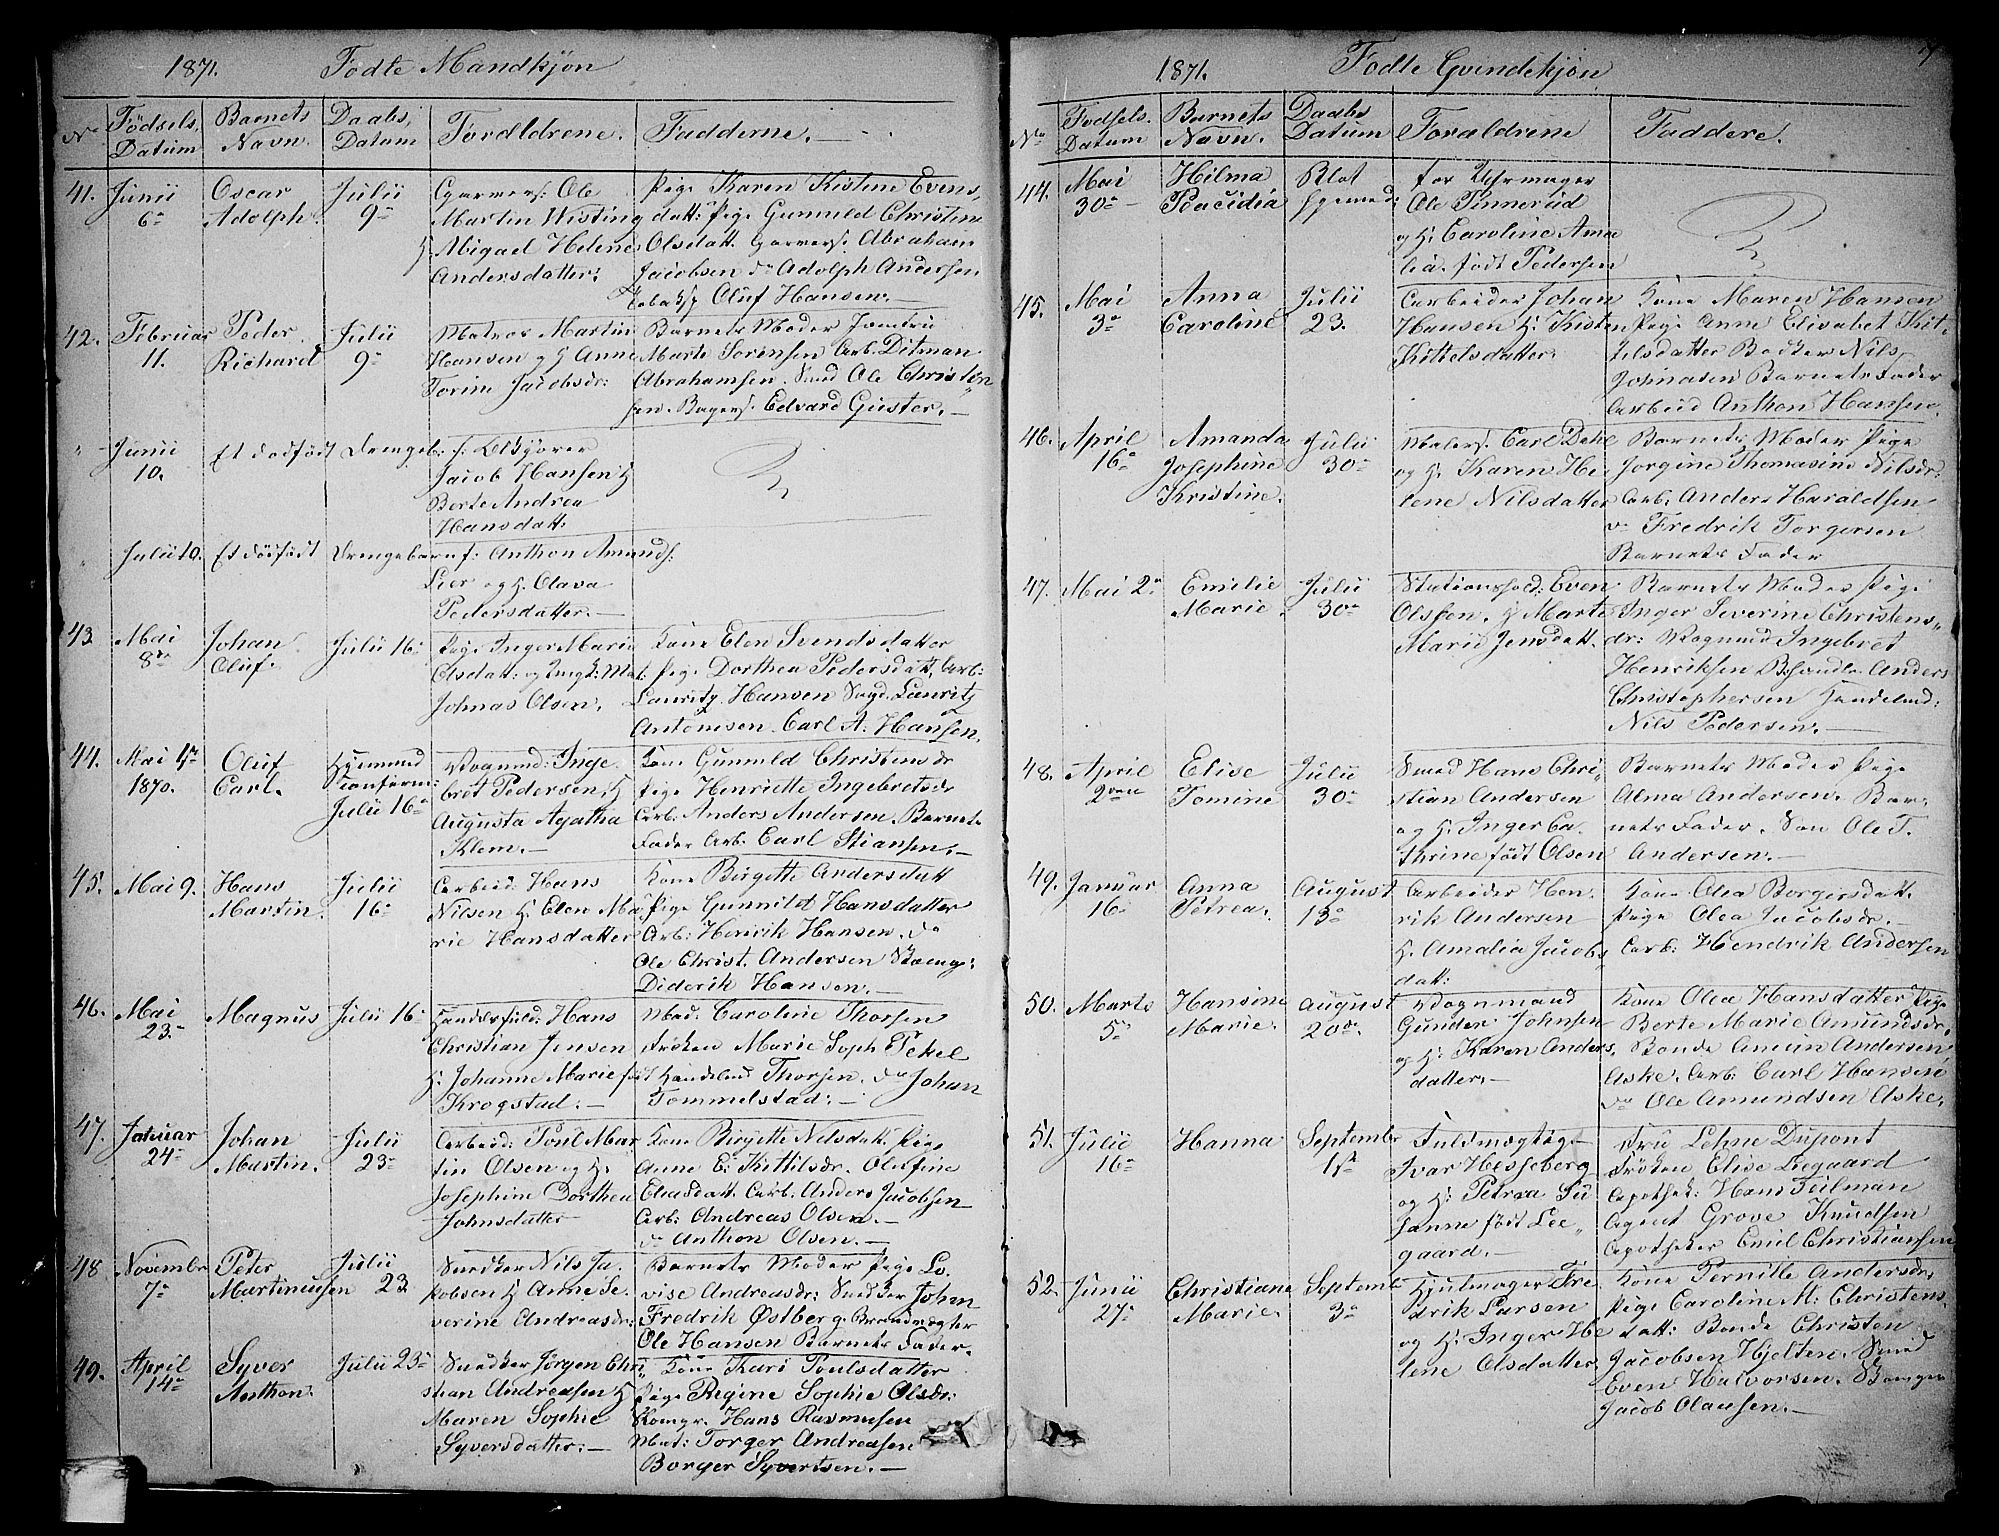 1871. Fødte Mandkjøn
No Fødsels Datum Barnets Navn. Daabs Datum Forældrene. Fadderne.
41. Junii 6te Oscar Adolph. Julii 9de
Garvers: Ole
Martin Wisting
H Abigael Helene
Andersdatter:
Pige Karen Kistine Evens-
datt: Pige Gunnild Christine
Olsdatt. Garvers. Abraham
Jacobsen do Adolph Andersen
Tobaksp Oluf Hansen.
42. Februar 11. Peder Richard Julii 9de
Matros Martin
Hansen og H Anne
Torine Jacobsdr:
Barnets Moder Jomfru
Marte Sørensen Arb. Ditman
Abrahamsen. Smed Ole Christen
sen. Bagers. Edvard Guster.
" Junii 10. Et dødfødt Drengeb: f:
Jacob Hansen H
Berte Andrea
Hansdatt:
" Julii 10. Et dødfødt Drengebarn f: Anthon Amunds:
Lier og H. Olava
Pedersdatter.
43 Mai 8de Johan Oluf. Julii 16:
Pige Inger Marie
Olsdatt: og Ungk: Mat
Johnas Olsen.
Kone Elen Svendsdatter
Pige Dorthea Pedersdatt, Arb:
Lauritz Hansen Smd. Lauritz
Antonisen. Carl A. Hansen.
44. Mai 1ste 1870. Oluf Carl. Hjemmed Konfirm: Julii 16de
Vognmd: Inge-
bret Pedersen, H
Augusta Agatha
Klem.
Kone Gunnild Christensdr
Pige Henriette Ingebretsdr
Arb: Anders Andersen. Barnets
Fader Arb. Carl Stiansen.
45. Mai 9. Hans Martin. Julii 16de
Arbeid: Hans
Nilsen H. Elen Ma-
rie Hansdatter
Kone Birgitte Andersdatt
Pige Gunnild Hansdatter
Arb: Henrik Hansen. do
Ole Christ. Andersen
Diderik Hansen.
46. Mai 23. Magnus Julii 16de
Handelsfuld: Hans
Christian Jensen
H. Johanne Marie født
Krogstad:
Mad: Caroline Thorsen
Frøken Marie Soph Pekel
Handelsmd Thorsen. do Johan
Tommelstad:
47. Januar 24de Johan Martin. Julii 23de
Arbeid: Poul Mar-
tin Olsen og H.
Josephine Dorthea
Johnsdatter
Kone Birgitte Nilsdatt. Pige
Anne E. Kittilsdr. Olefine
Eliasdatt. Arb. Anders Jacobsen
Arb: Andreas Olsen.
do Anthon Olsen.
48 Novembr 7de Peter Martiniusen Julii 23
Snedker Nils Ja-
kobsen H Anne Se-
verine Andreasdr:
Barnets Moder Pige Lo-
vise Andreasdr: Snedker Johan
Fredrik Østberg. Brandvægter
Ole Hansen Barnets Fader.
49. April 14de Syver Anthon. Julii 23de
Snedker Jørgen Chri-
stian Andreasen H
Maren Sophie
Syversdatter:
Kone Kari Poulsdatter
Pige Regine Sophie Olsdr:
Komgr. Hans Rasmusen
Mat: Torger Andreasen
Borger Syvertsen.
1871. Fødte Qvindekjøn
No Fødsels Datum Barnets Navn. Daabs Datum Forældrene Faddere.
44. Mai 30de Hilma Placidia Blot hjemmed:
for Uhrmager
Ole Tinnerud
og H: Caroline Ama
lia. født Pedersen
45. Mai 3de Anna Caroline Julii 23.
Arbeider Johan
Hansen H: Kisten
Kittelsdatter
Kone Maren Hansen
Pige Anne Elisabet Kit-
telsdatter Bødker Nils
Johnasen Barnets Fader
Arbeid Anthon Hansen.
46. April 16de Amanda Josephine Kristine. Julii 30de
Malers: Carl Dehl
og H. Karen He-
lene Nilsdatter
Barnets Moder Pige
Jorgine Thomasine Nilsdr:
Arb: Anders Haraldsen
do Fredrik Torgersen
Barnets Fader
47. Mai 2de Emilie Marie. Julii 30te
Stationshold: Even
Olssen. H Marte
Marie Jensdatt.
Barnets Moder Pige
Inger Severine Christens-
dr: Vognmd Ingebret
Henriksen Anders
Christophersen Handelsmd:
Nils Pedersen.
48. April 2den Elise Tomine Julii 30de
Smed Hans Chri-
stian Andersen
og H. Inger Ca-
thrine født Olsen
Barnets Moder Pige
Alma Andersen. Bar-
nets Fader. Søn Ole T.
Andersen.
49. Januar 16de Anna Petrea. August 13de
Arbeider Hen-
rik Andersen
H. Amalia Jacobs-
datt:
Kone Olea Borgersdatt.
Pige Olea Jacobsdr.
Arb: Hendrik Andersen
50. Marts 5te Hansine Marie. August 20de
Vognmand
Gunder Johnsen
og H: Karen Anders-
datter.
Kone Olea Hansdatter Pige
Berte Marie Amundsdr.
Bonde Amun Andersen
Aske. Arb: Carl Hansen
do Ole Amundsen Aske.
51. Julii 16de Hanna Septembr 1ste
Fuldmægtig
Ivar Hesseberg
og H: Petrea Su-
sanne født Lee-
gaard.
Fru Lehne Dupont
Frøken Elise Legaard
Apothek: Hans Feilman
Agent Grove Knudsen
Apotheker Emil Christiansen
52. Junii 27de Christiane Marie. Septemb 3de
Hjulmager Fre-
drik Larsen
og H. Inger He-
lene Olsdatter
Kone Pernille Andersdr,
Pige Caroline M: Christens-
datt: Bonde Christen
Jacobsen Hjelten. Smed
Even Halvorsen.
Jacob Olausen.